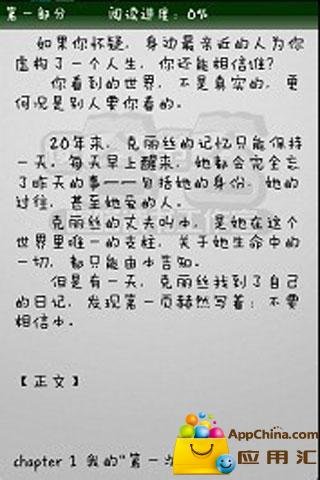 第一部分 阅读进度：0%
如果你怀疑，身边最亲近的人为你
虚构了一个人生，你还能相信谁？
你看到的世界，不是真实的，更
何况是别人要你看的。
20年来，克丽丝的记忆只能保持
一天，每天早上醒来，她都会完全忘
了昨天的事——包括她的身份，她的
过往，甚至她爱的人。
克丽丝的丈夫叫本，是她在这个
世界里唯一的支柱，关于她生命中的
一切，都只能由本告知。
但是有一天，克丽丝找到了自己
的日记，发现第一页赫然写着：不要
相信本。
【正文】
chapter 1 我的"第一次
AppChina.com
应用汇